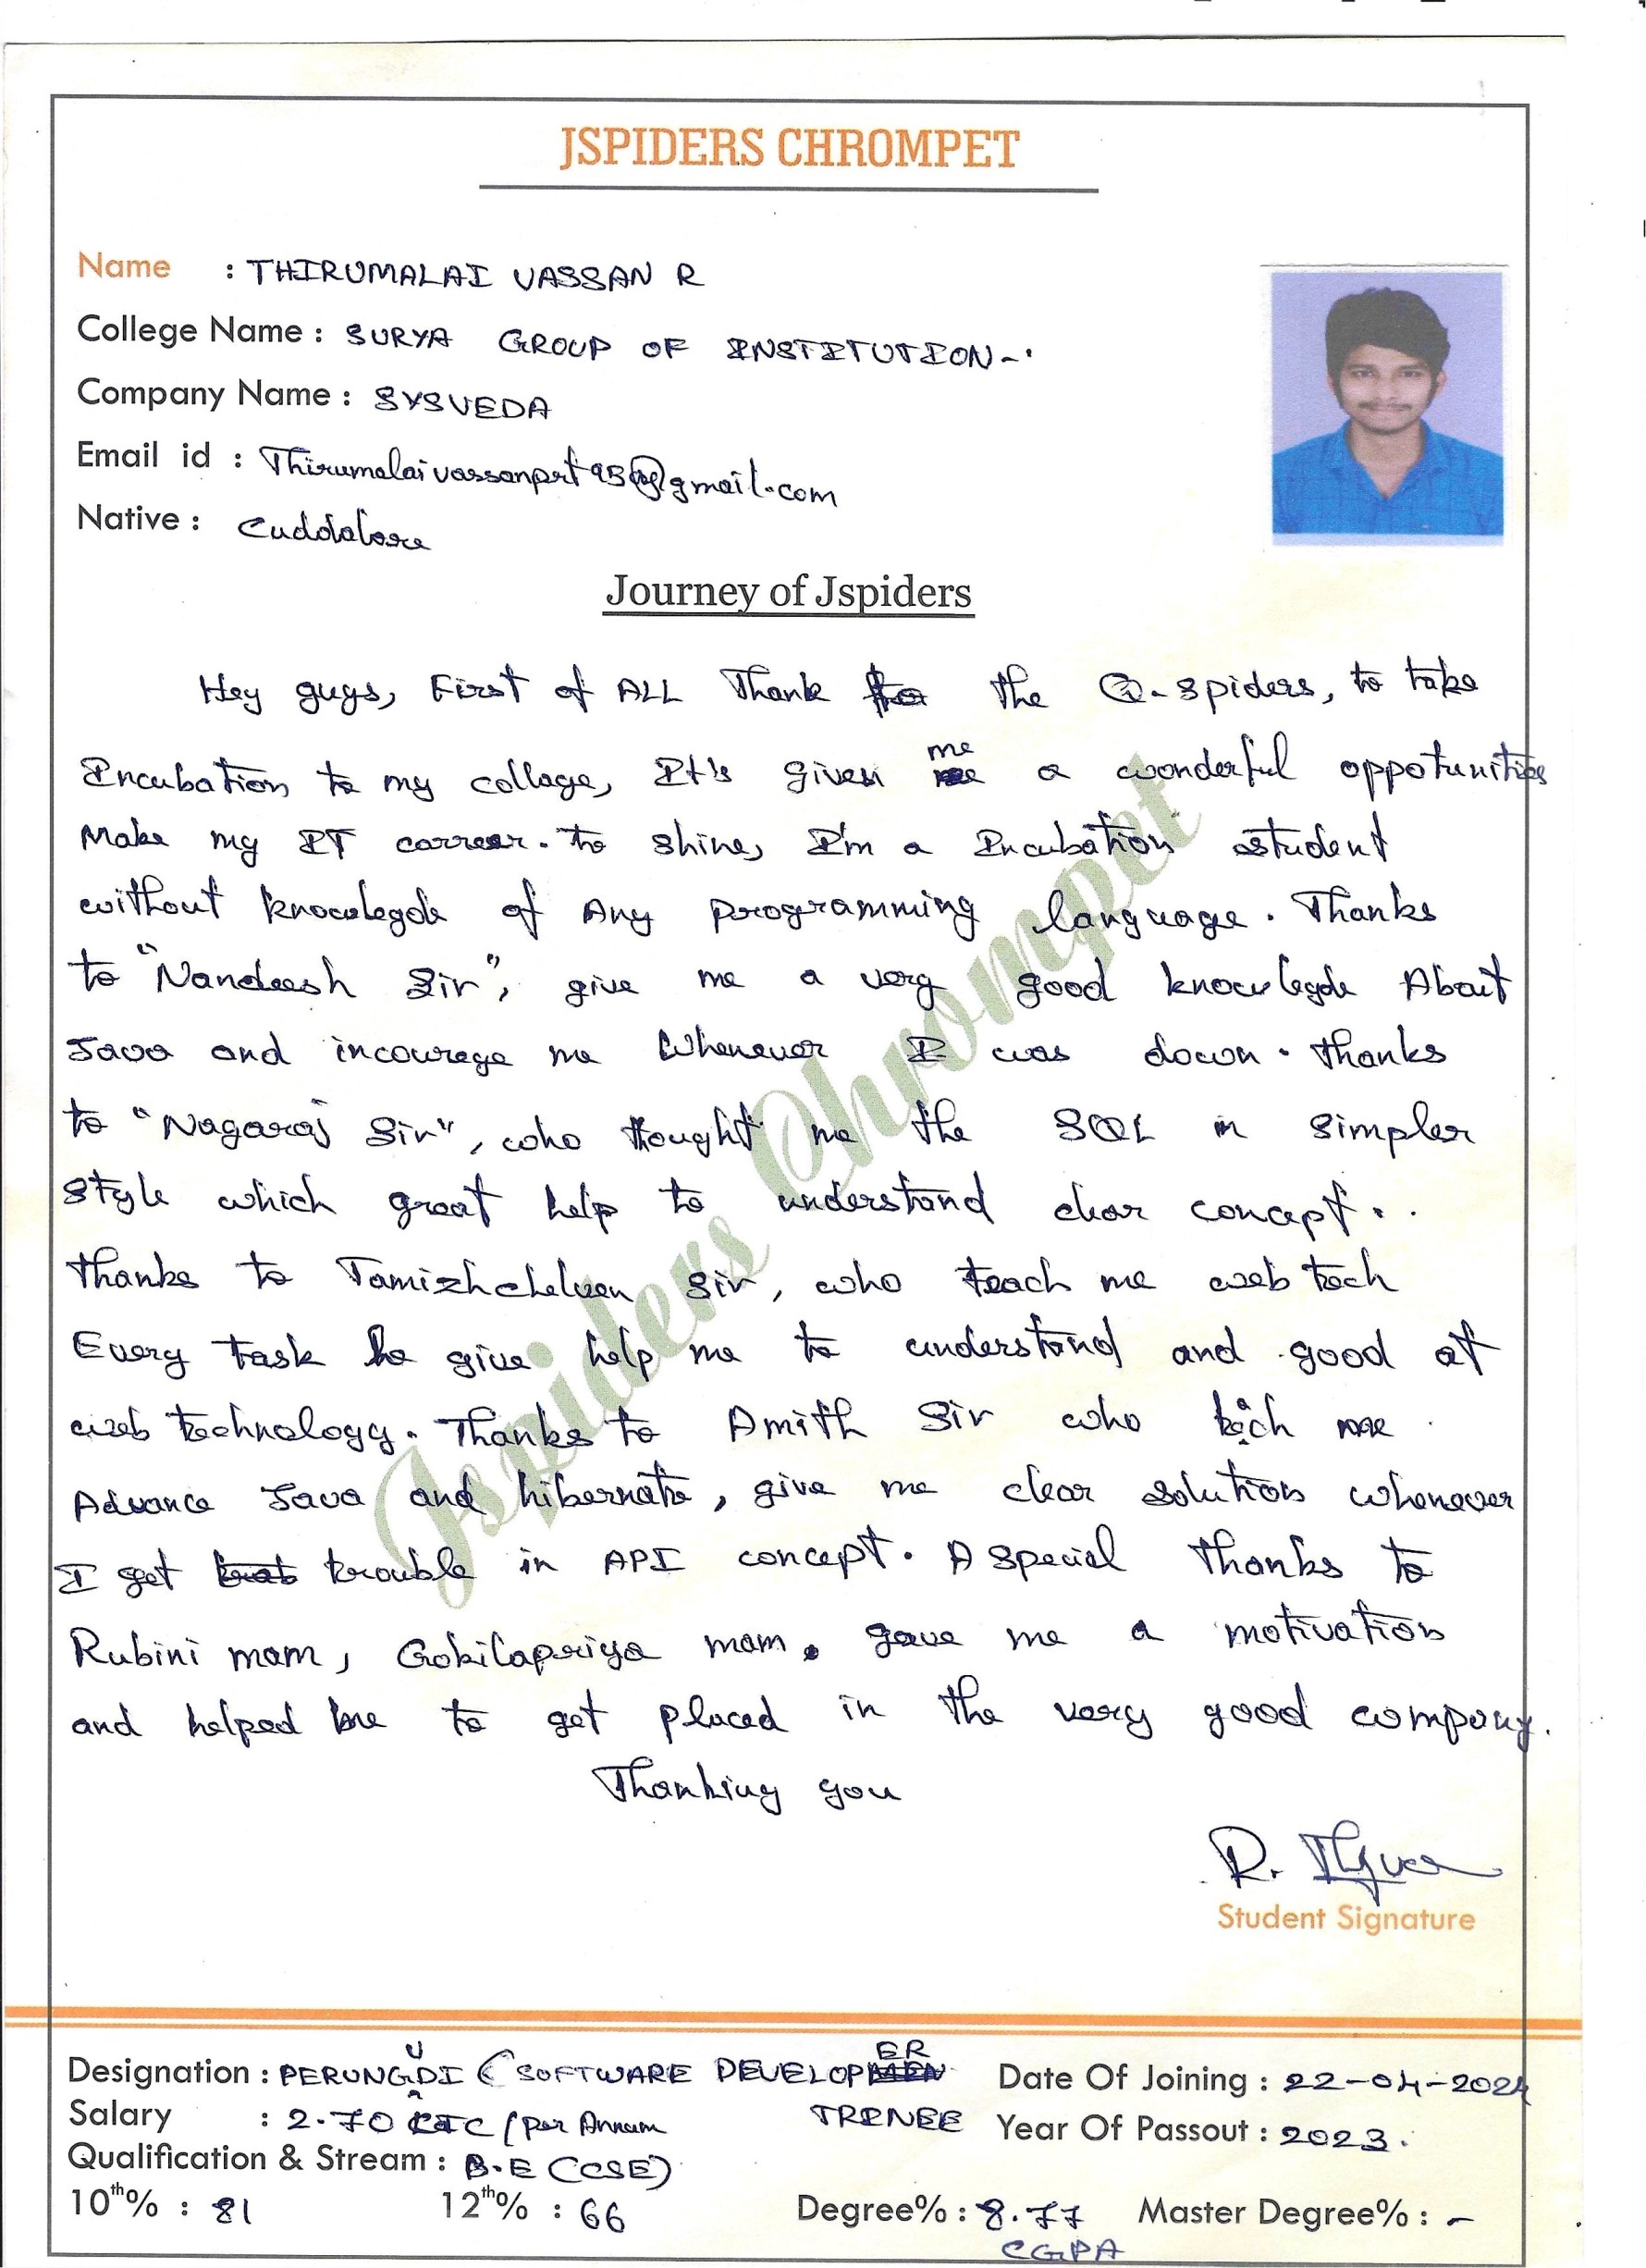 JSPIDERS CHROMPET
Name : THIRUMALAI VASSAN R
College Name : SURYA GROUP OF INSTITUTION
Company Name : SYSVEDA
Email id : Thirumalaivassanprt95@gmail.com
Native : Cuddalore
Journey of Jspiders
Hey guys, First of ALL Thank the Q-spiders, to take
Incubation to my collage, It's given me a wonderful oppotunities
Make my IT carreer. to shine, I'm a Incubation student
without knowlegde of Any programming language. Thanks
to "Nandeesh Sir", give me a very good knowlegde About
Java and incourege me Whenever I was down. thanks
to "Nagaraj Sir", who thought me the SQL in simpler
style which great help to understand clear concept..
thanks to Tamizhchelven Sir, who teach me web tech
Every task he give help me to understand and good at
web technology. Thanks to Amith Sir who me
Advance Java and hibernate, give me clear solution whenever
I get trouble in API concept. A special thanks to
Rubini mam, Gokilapriya mam. gave me a motivation
and helped me to get placed in the very good company.
Thanking you
R.
Student Signature
Designation : PERUNGUDI (SOFTWARE DEVELOPER
TRINEE
Date Of Joining : 22-04-2024
Salary : 2.70 CTC / per Annum
Year Of Passout : 2023.
Qualification & Stream : B.E (CSE)
10th% : 81 12th% : 66 Degree% : 8.77 CGPA Master Degree% : -
Jspiders Chrompet